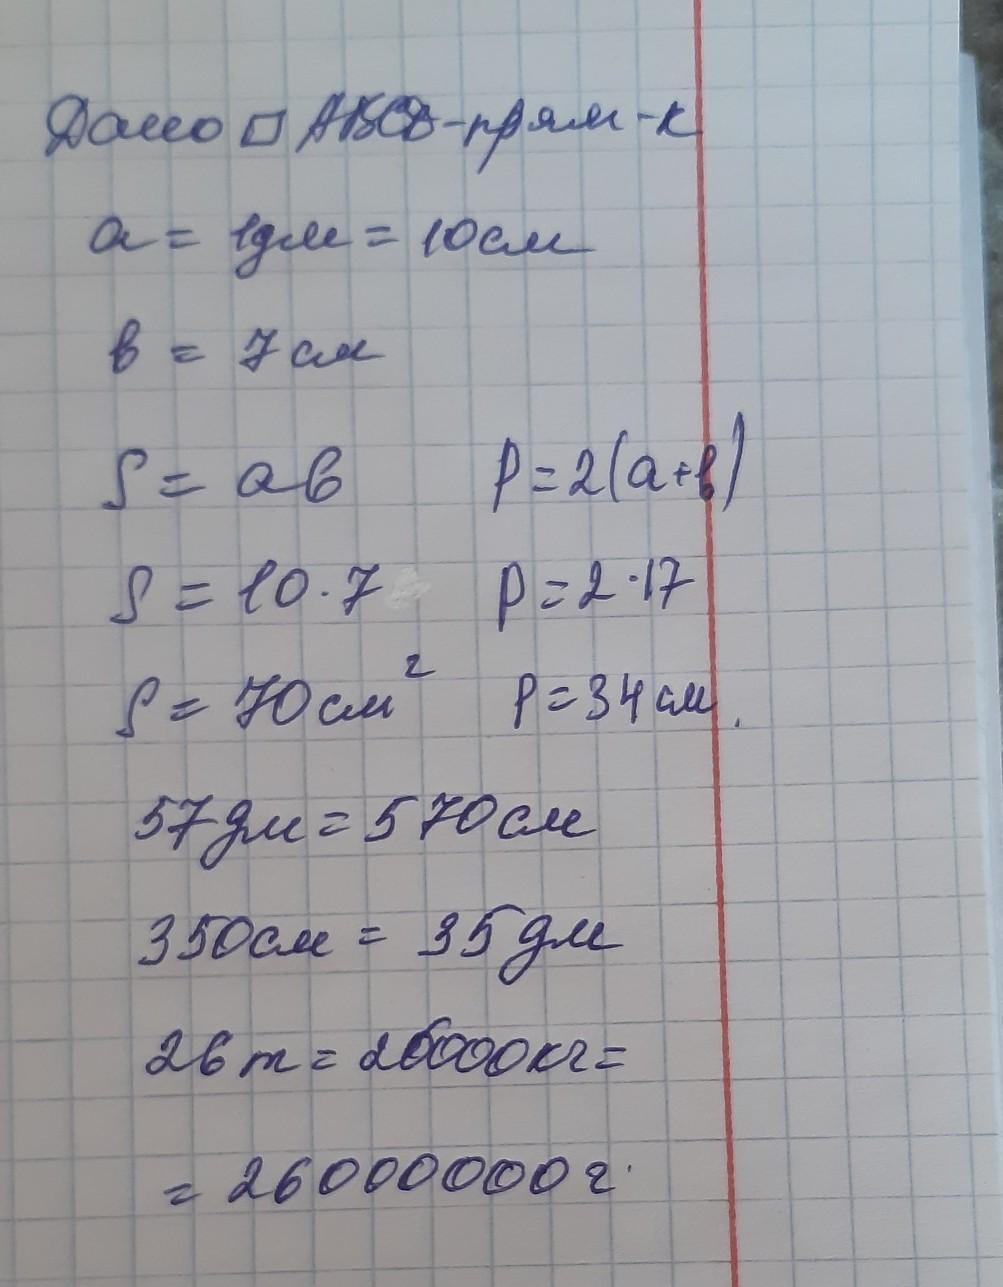 Дано □ АВСD-прям-к
a = 1дм = 10см
в = 7см
S = aв P = 2(a+в)
S = 10·7 P = 2·17
S = 70см² P = 34см.
57дм = 570см
350см = 35дм
26т = 26000кг =
= 26000000г.